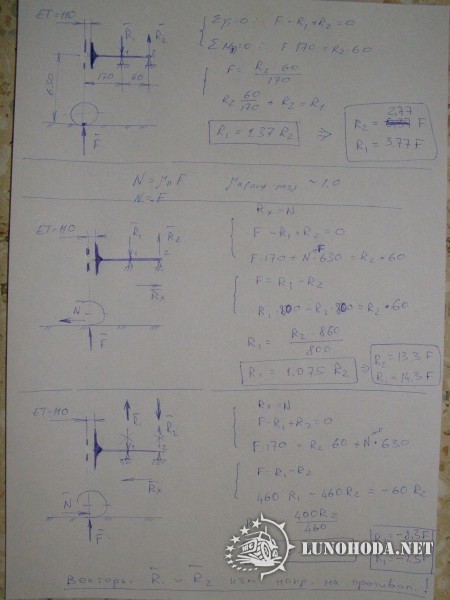 ET=110
R̄₁ R̄₂
630
170 60
F̄
Σy=0: F-R₁+R₂=0
F·170=R₂·60
F= R₂·60 / 170
R₂ 60/170 + R₂ = R₁
R₁=1.37 R₂ ⇒ R₂= 2.77 F
R₁=3.77F
N=μₙF ~1.0
N=F
ET=110
R̄₁ R̄₂
R̄x
N̄
F̄
Rx=N
F-R₁+R₂=0
F·170+N·630=R₂·60
F=R₁-R₂
R₁·800-R₂·800=R₂·60
R₁= R₂·860 / 800
R₁=1.075 R₂ ⇒ R₂=13.3F
R₁=14.3F
ET=110
R̄₁ R̄₂
R̄x
N̄
F̄
Rx=N
F-R₁+R₂=0
F·170=R₂·60+N·630
F=R₁-R₂
460 R₁-460R₂=-60R₂
400R₂ / 460
LUNOHODA.NET
Вектора R̄₁ и R̄₂ изм. напр. на противоп.!